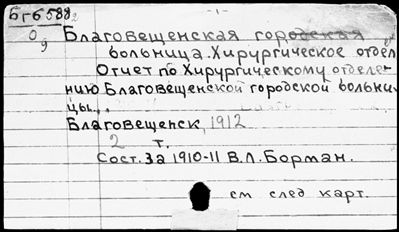 Бг6588₂
0
9
- 1 -
Благовещенская городская
больница. Хирургическое отдел
Отчет по Хирургическому отделе-
нию Благовещенской городской больни-
цы...
Благовещенск, 1912
2 т.
Сост. за 1910-11 В.Л. Борман.
см след карт.